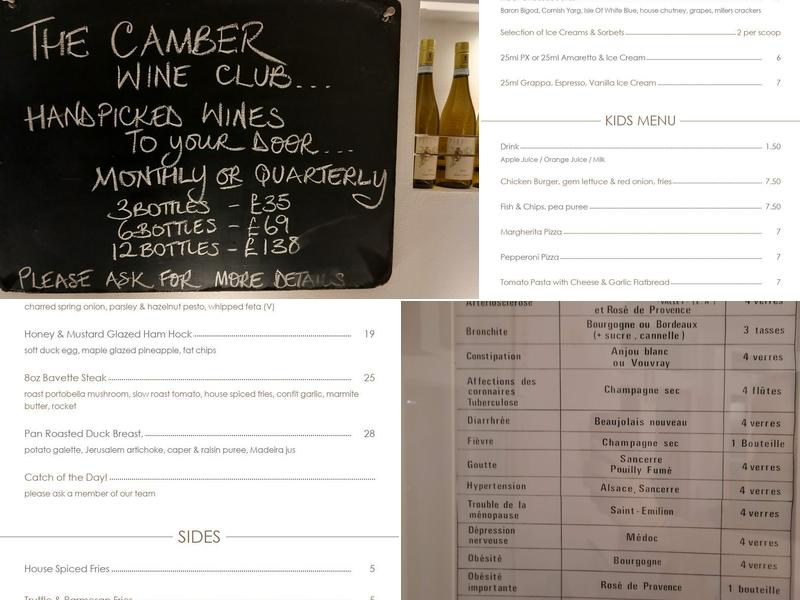 THE CAMBER
WINE CLUB...
HANDPICKED WINES
TO YOUR DOOR...
MONTHLY OR QUARTERLY
3 BOTTLES - £35
6 BOTTLES - £69
12 BOTTLES - £138
PLEASE ASK FOR MORE DETAILS
Baron Bigod, Cornish Yarg, Isle Of White Blue, house chutney, grapes, millers crackers
Selection of Ice Creams & Sorbets 2 per scoop
25ml PX or 25ml Amaretto & Ice Cream 6
25ml Grappa, Espresso, Vanilla Ice Cream 7
KIDS MENU
Drink 1.50
Apple Juice / Orange Juice / Milk
Chicken Burger, gem lettuce & red onion, fries 7.50
Fish & Chips, pea puree 7.50
Margherita Pizza 7
Pepperoni Pizza 7
Tomato Pasta with Cheese & Garlic Flatbread 7
charred spring onion, parsley & hazelnut pesto, whipped feta (V)
Honey & Mustard Glazed Ham Hock 19
soft duck egg, maple glazed pineapple, fat chips
8oz Bavette Steak 25
roast portobella mushroom, slow roast tomato, house spiced fries, confit garlic, marmite
butter, rocket
Pan Roasted Duck Breast, 28
potato galette, Jerusalem artichoke, caper & raisin puree, Madeira jus
Catch of the Day!
please ask a member of our team
SIDES
House Spiced Fries 5
Truffle & Parmesan Fries 5
Artériosclérose 4 verres
et Rosé de Provence
Bronchite Bourgogne ou Bordeaux 3 tasses
(+ sucre, cannelle)
Constipation Anjou blanc 4 verres
ou Vouvray
Affections des
coronaires Champagne sec 4 flûtes
Tuberculose
Diarrhrée Beaujolais nouveau 4 verres
Fièvre Champagne sec 1 Bouteille
Goutte Sancerre 4 verres
Pouilly Fumé
Hypertension Alsace, Sancerre 4 verres
Trouble de la Saint-Emilion 4 verres
ménopause
Dépression Médoc 4 verres
nerveuse
Obésité Bourgogne 4 verres
Obésité Rosé de Provence 1 bouteille
importante